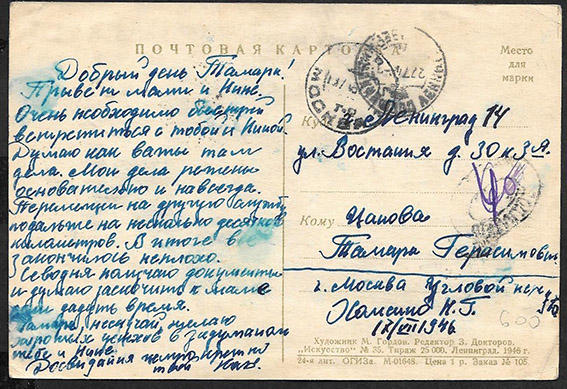 ПОЧТОВАЯ КАРТОЧКА
Место
для
марки
Добрый день Тамара!
Привет маме и Нине.
Очень необходимо быстрей
встретиться с тобой и Ниной.
Думаю как ваши там
дела. Мои дела решены
основательно и навсегда.
на другую
подальше на несколько десятков
километров. В итоге всё
закончилось неплохо.
Сегодня получаю документы
и думаю заскочить к маме
дать время.
Тамара, не скучай, желаю
успехов в задуманом
тебе и Нине.
Досвидания
твой
МОСКВА
Ку
Ленинград 14
ул. Востания д. 30 к 3А.
Кому
Тамара Герасимовне
г. Москва Угловой пер.
Н. Г.
IX/VII 1946
600
Художник М. Гордон. Редактор З. Докторов.
„Искусство" № 35. Тираж 25 000. Ленинград. 1946 г.
24-я лит. ОГИЗа. М-01648. Цена 1 р. Заказ № 105.